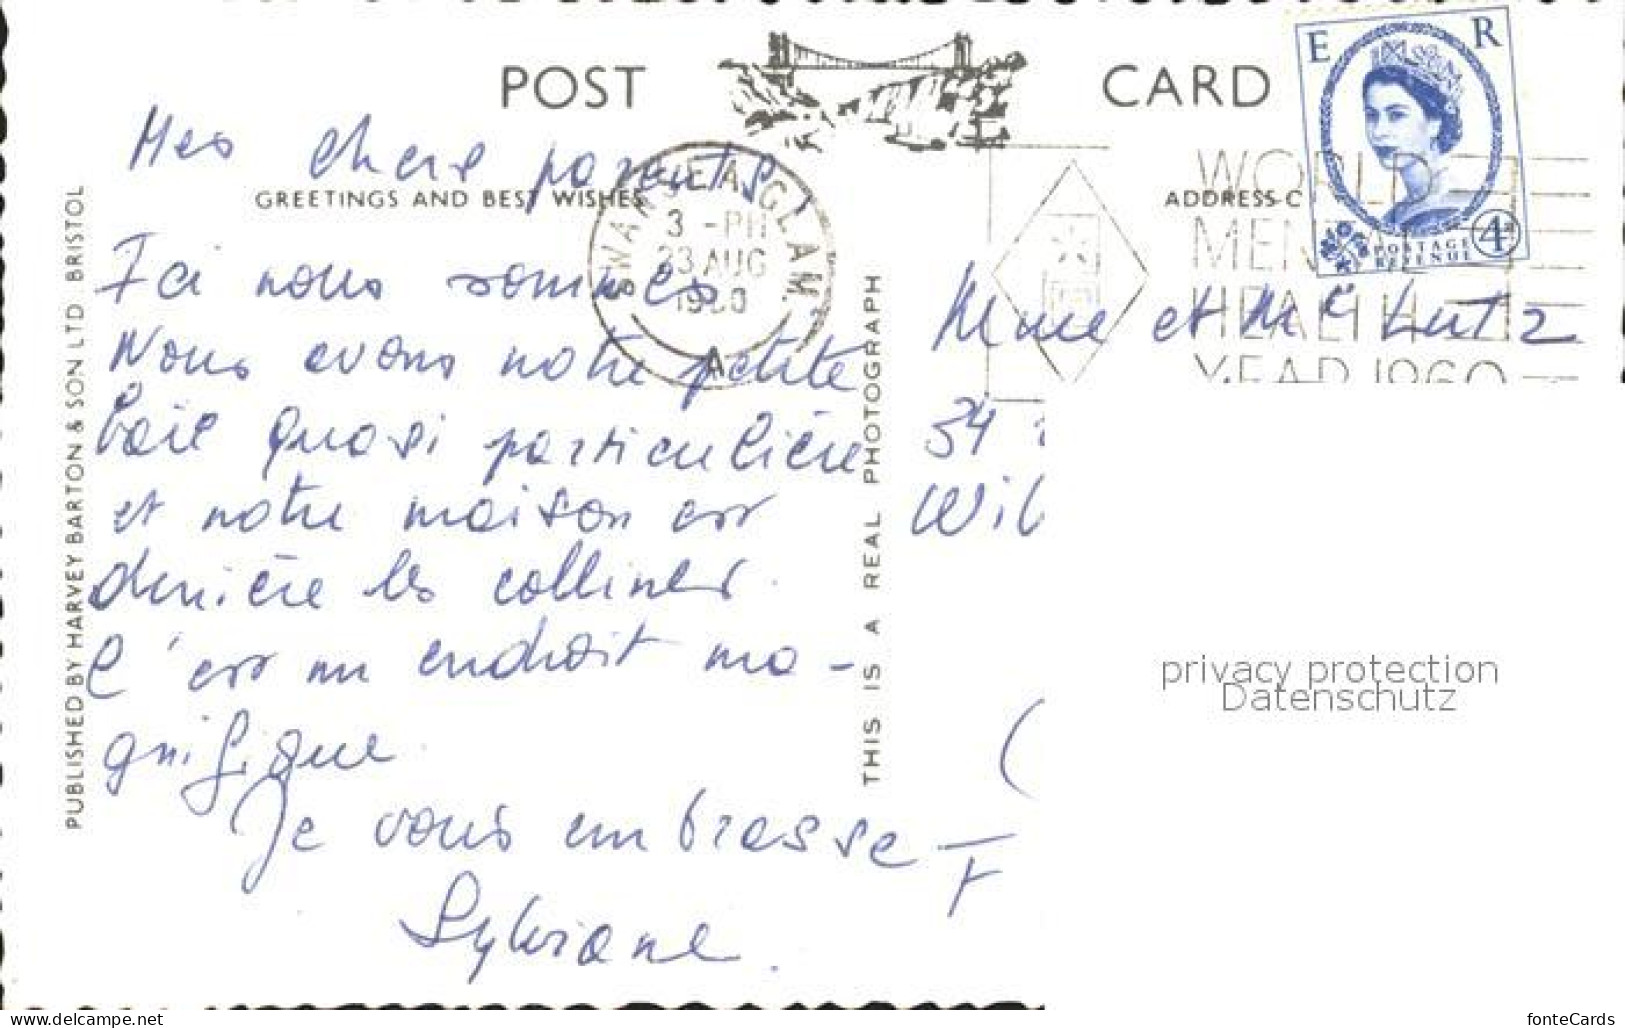 POST CARD
GREETINGS AND BEST WISHES
ADDRESS
E R
POSTAGE
REVENUE
4D
SWANSEA GLAM.
3 -PM
23 AUG
1960
A
WORLD
MEN
HEALTH
YEAR 1960
PUBLISHED BY HARVEY BARTON & SON LTD BRISTOL
THIS IS A REAL PHOTOGRAPH
Mes chers parents
Ici nous sommes
Nous avons notre petite
baie quasi particulière
et notre maison est
derrière les collines.
C'est un endroit ma-
gnifique
Je vous embrasse
Sylviane.
Mme et Mr Lutz
34
Wil
F
privacy protection
Datenschutz
www.delcampe.net
fonteCards